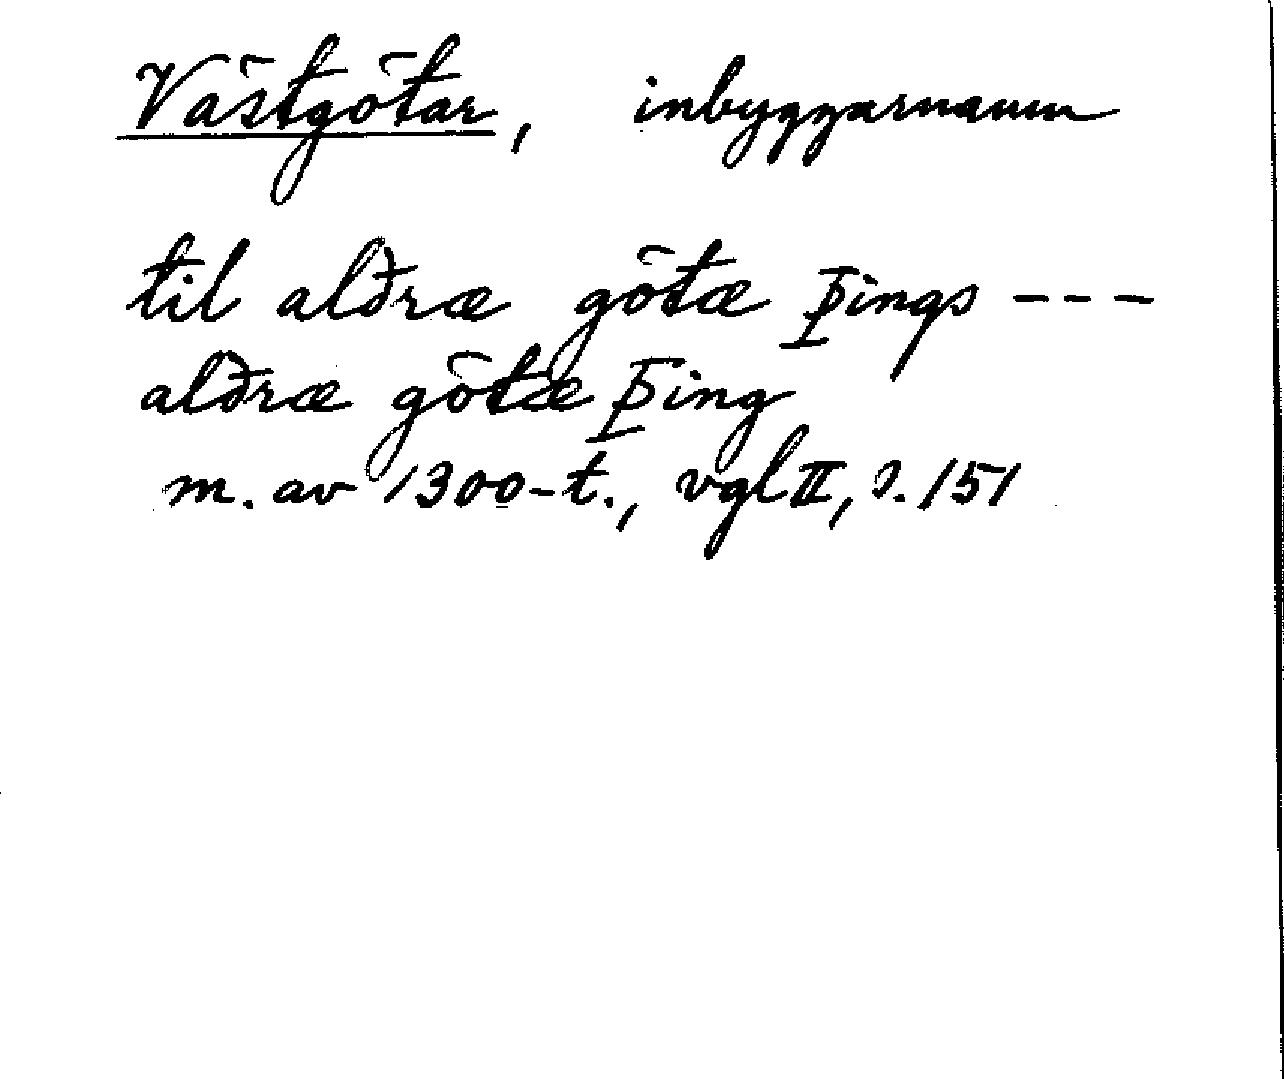 Västgötar, inbyggarnamn
til alðræ götæ þings ---
alðræ götæ þing
m. av 1300-t., vgl II, s. 151